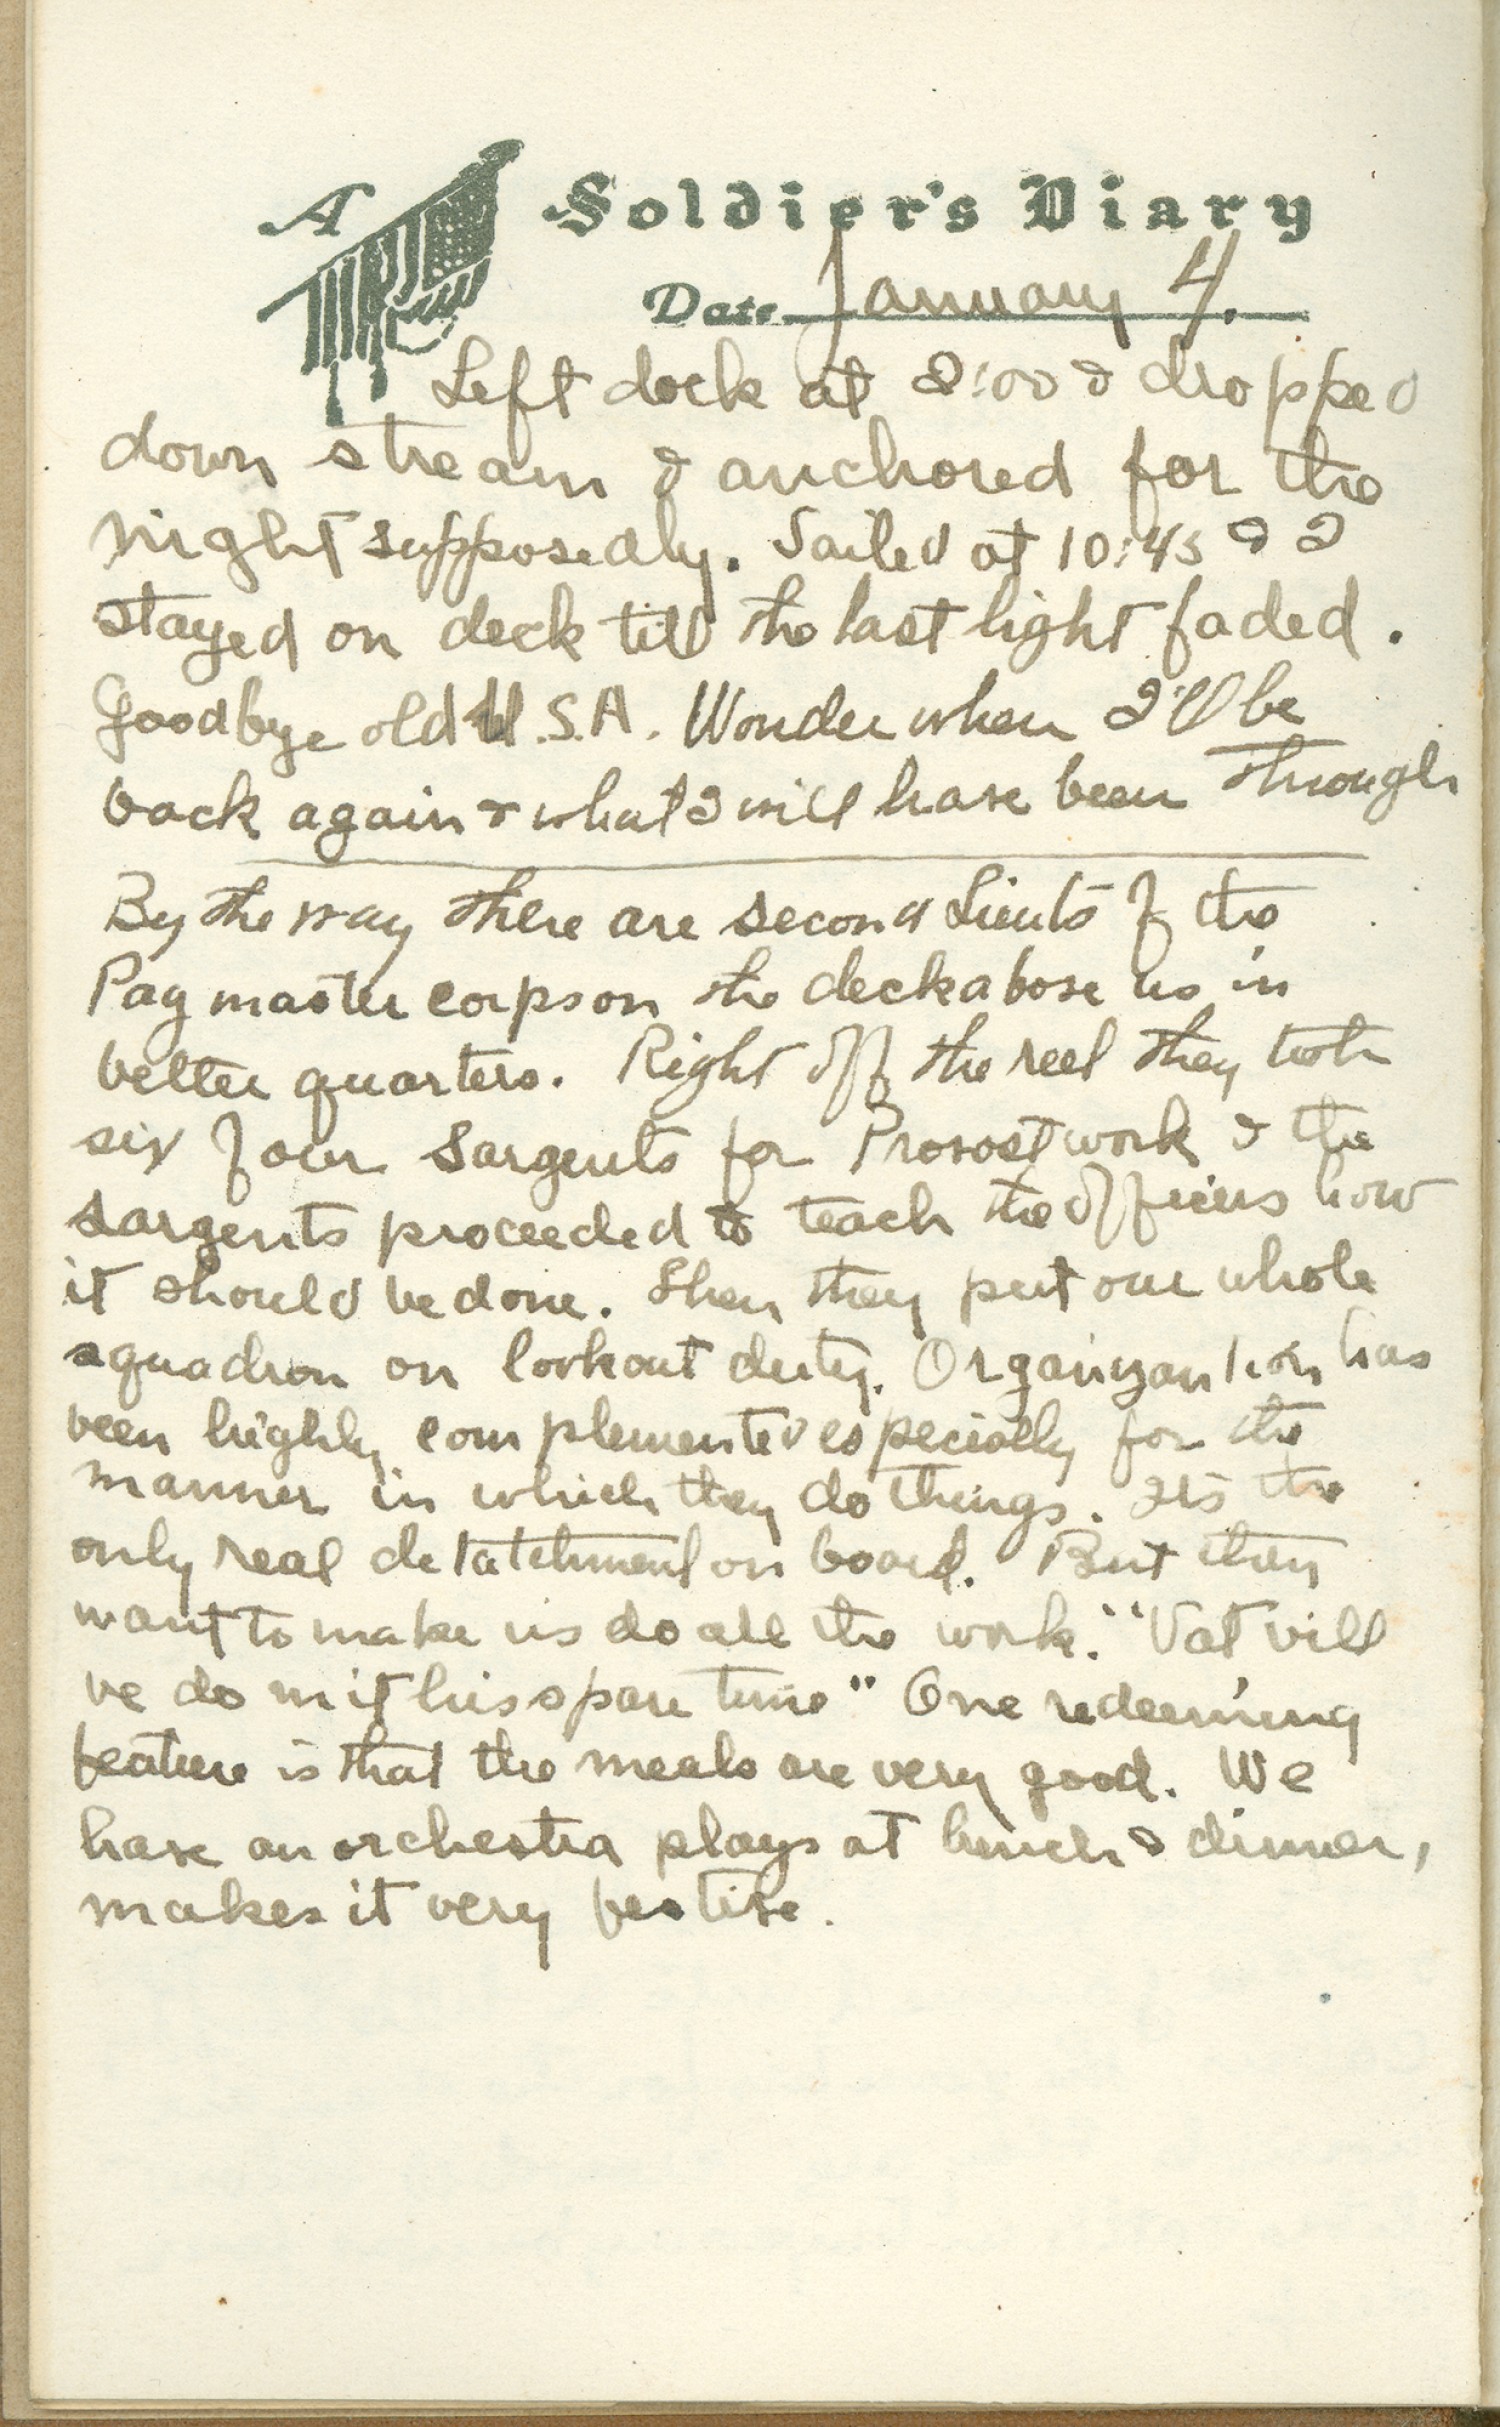 A Soldier's Diary
Date January 4.
Left dock at 2:00 & dropped
down stream & anchored for the
night supposedly. Sailed at 10:45 & I
stayed on deck till the last light faded.
Goodbye old U.S.A. Wonder when I'll be
back again & what I will have been through
By the way there are second Lieuts of the
Paymaster corps on the deck above us in
better quarters. Right off the reel they took
six of our Sargents for Provost work & the
sargents proceeded to teach the officers how
it should be done. Then they put our whole
squadron on lookout duty. Organizantion has
been highly complemented especially for the
manner in which they do things. Its the
only real detatchment on board. But they
want to make us do all the work. "Vat vill
ve do mit his spare time" One redeeming
feature is that the meals are very good. We
have an orchestra plays at lunch & dinner,
makes it very festive.